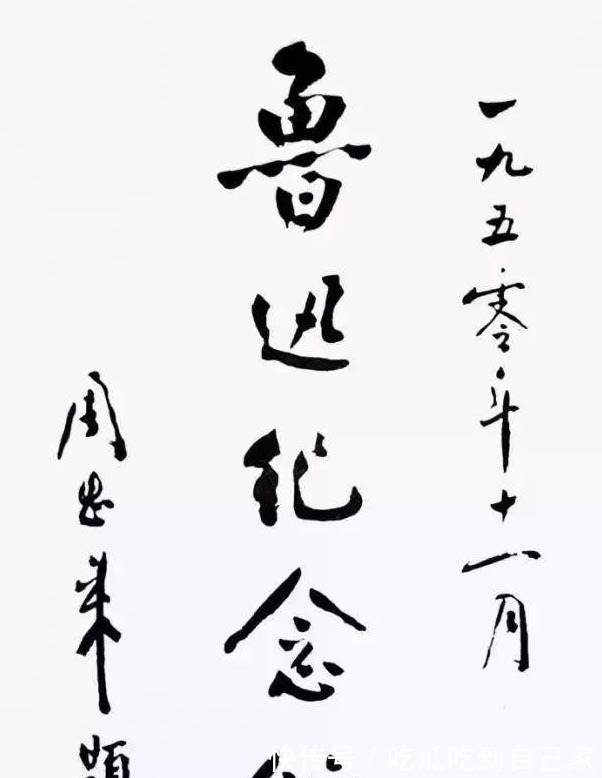 一九五零年十一月
鲁迅纪念
周恩来题
快传号 / 吃瓜吃到自己家